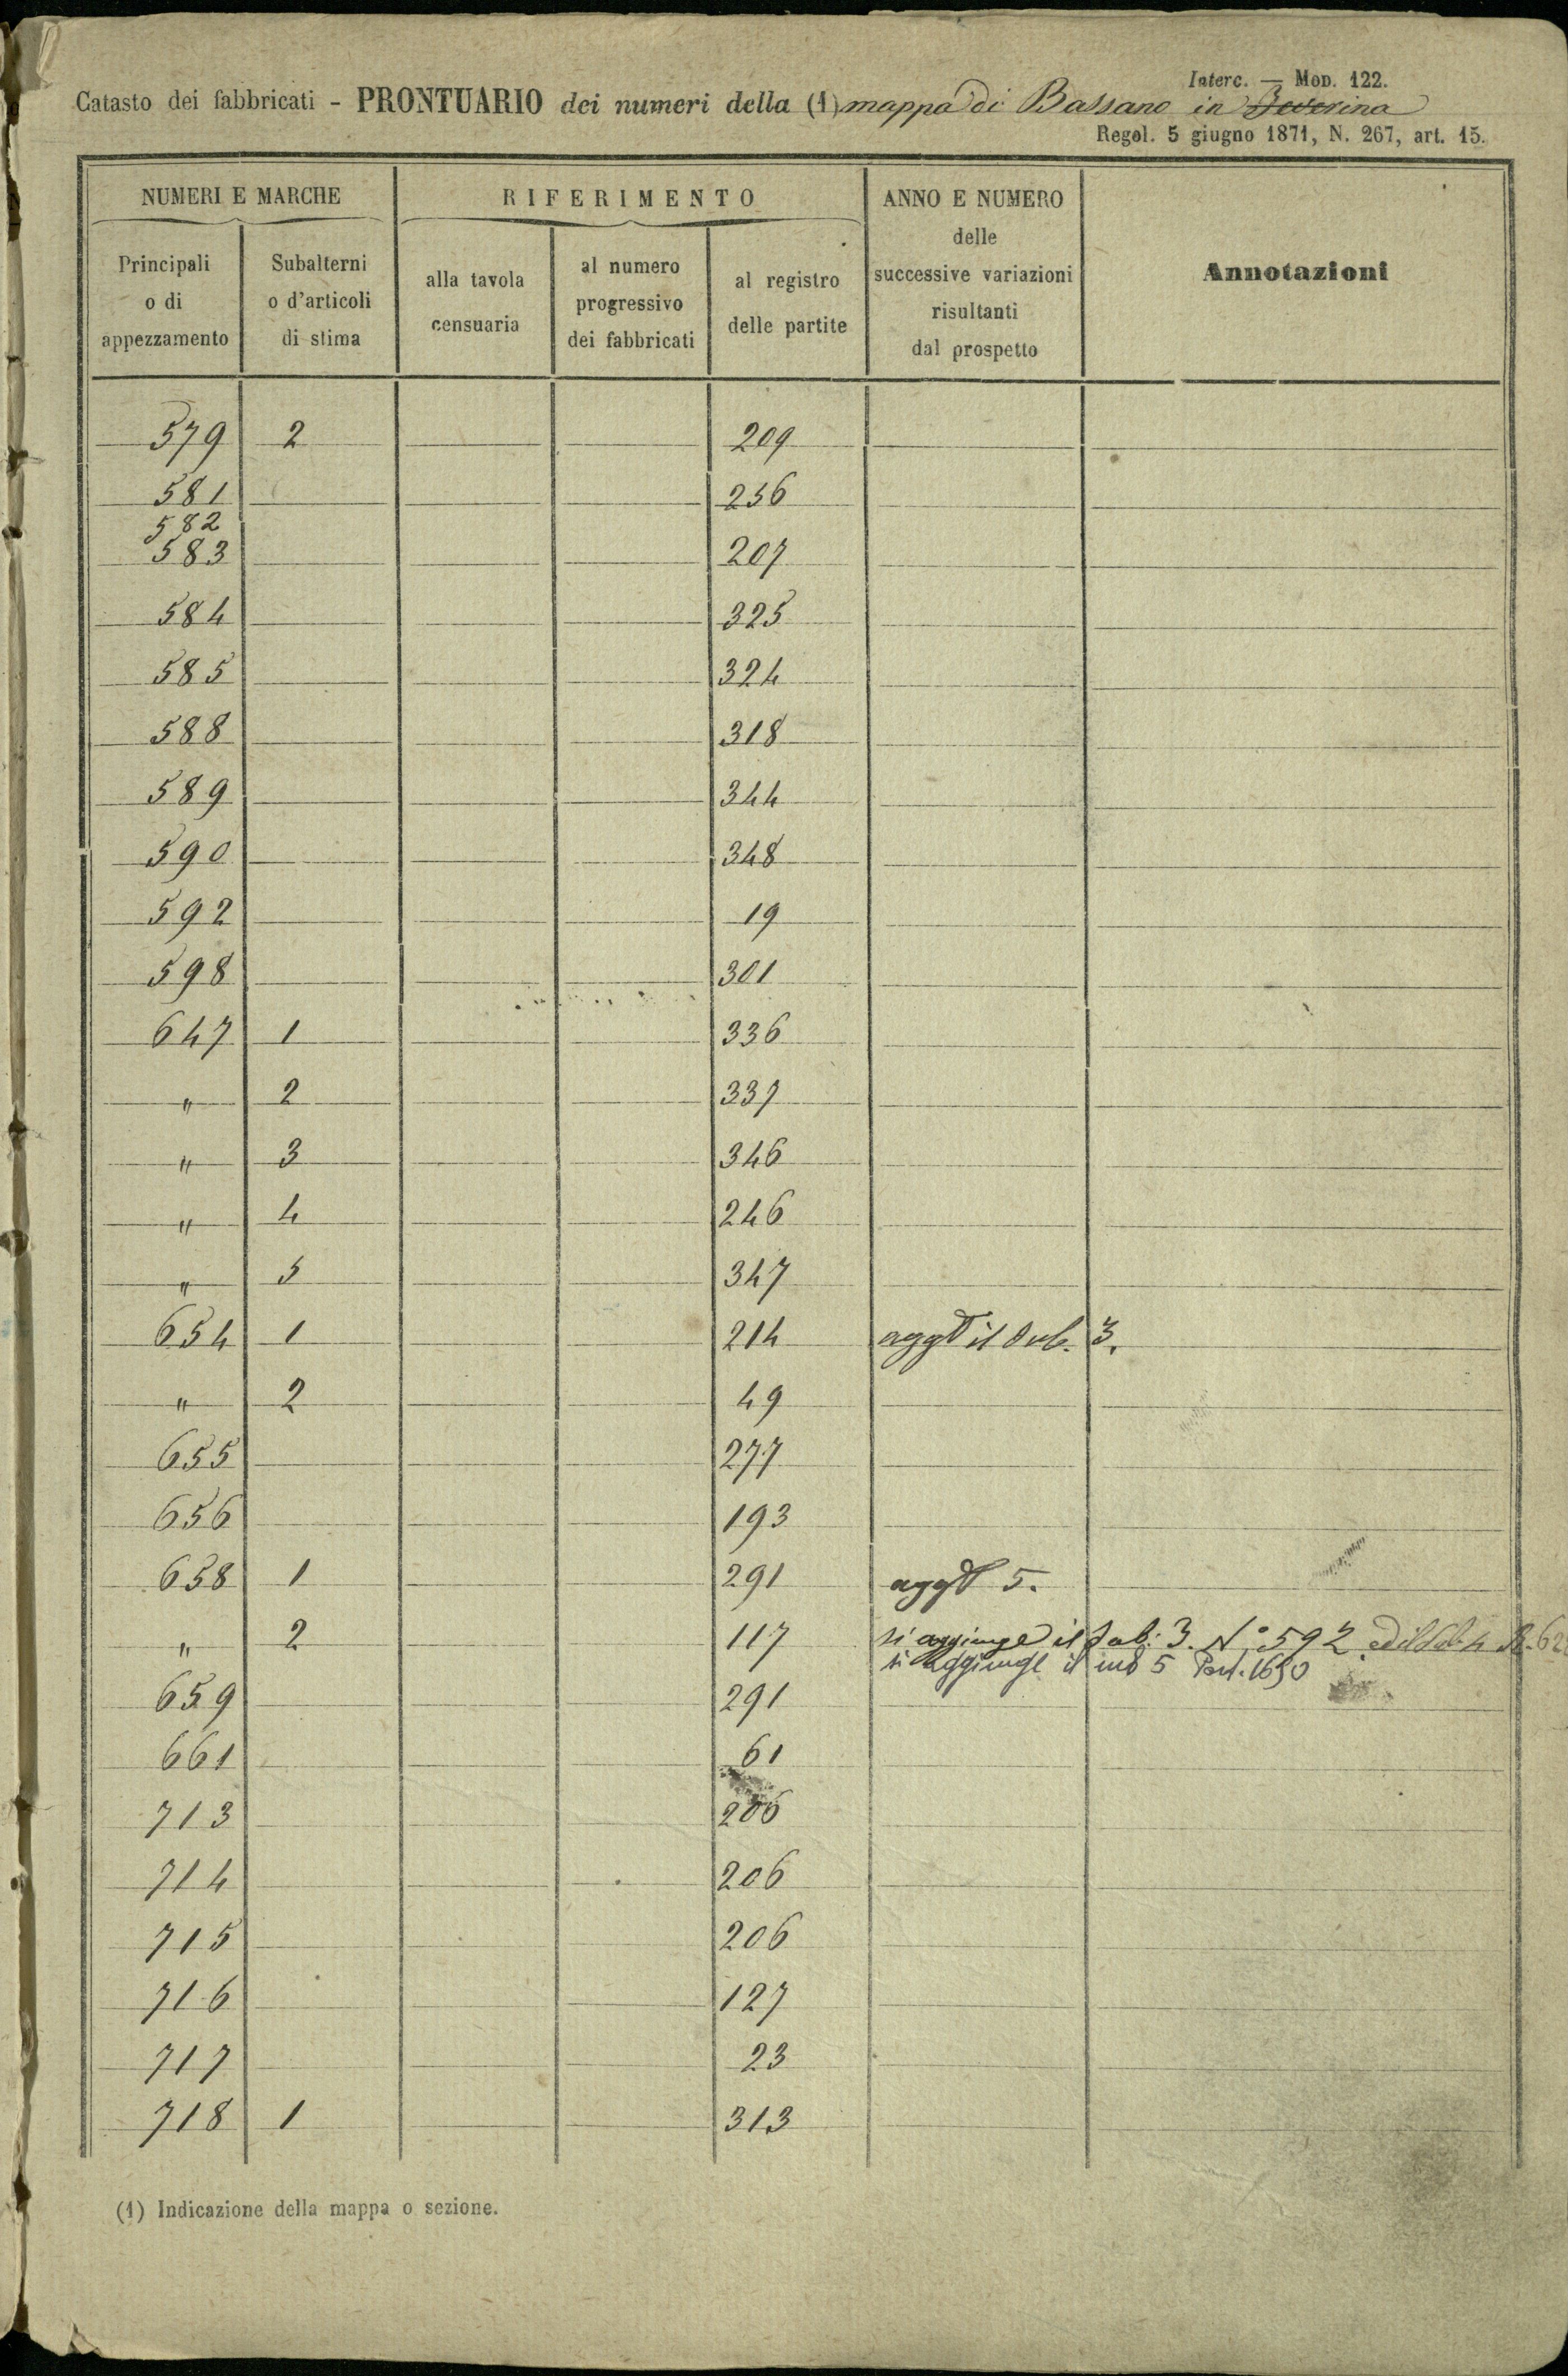 Interc. — Mod. 122.
Catasto dei fabbricati - PRONTUARIO dei numeri della (1) mappa di Bassano in Teverina
Regol. 5 giugno 1871, N. 267, art. 15.
NUMERI E MARCHE RIFERIMENTO ANNO E NUMERO delle successive variazioni risultanti dal prospetto Annotazioni
Principali o di appezzamento Subalterni o d'articoli di stima alla tavola censuaria al numero progressivo dei fabbricati al registro delle partite
579 2 209
581 256
582
583 207
584 325
585 324
588 318
589 344
590 348
592 19
598 301
647 1 336
" 2 337
" 3 346
" 4 246
" 5 347
654 1 214 aggt il sub. 3.
" 2 49
655 277
656 193
658 1 291 aggt 5.
" 2 117 si aggiunge il sub: 3. N° 592 ed il sub 4
si aggiunge il sub 5 Part. 1650
659 291
661 61
713 206
714 206
715 206
716 127
717 23
718 1 313
(1) Indicazione della mappa o sezione.